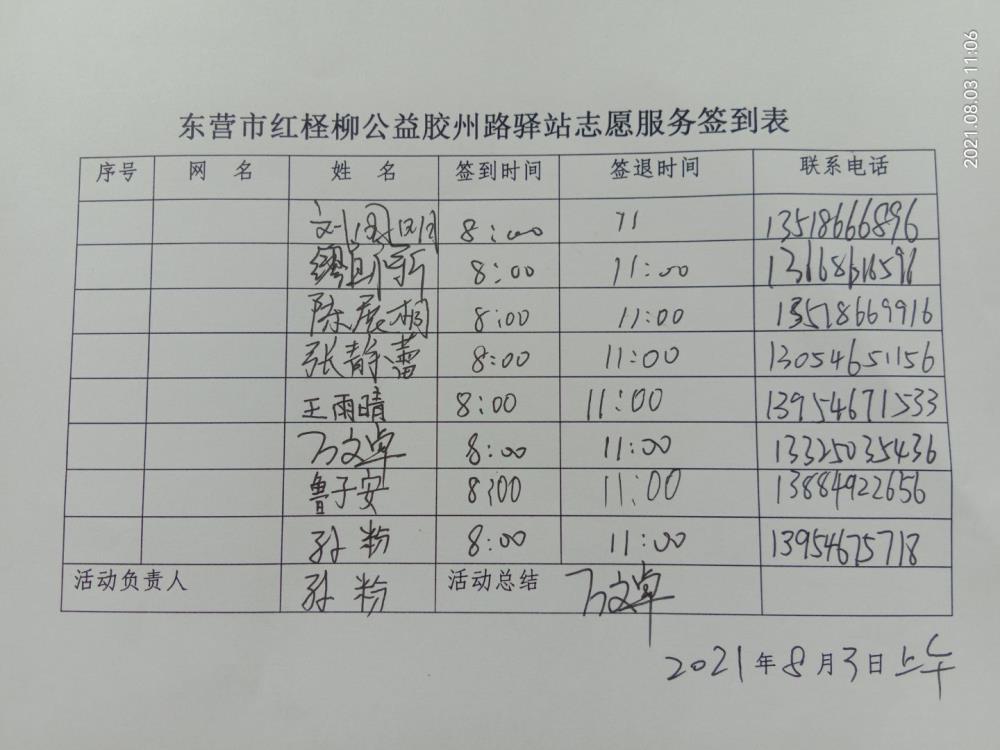 2021.08.03 11:06
东营市红柽柳公益胶州路驿站志愿服务签到表
序号 网 名 姓 名 签到时间 签退时间 联系电话
8:00 11 13518666896
8:00 11:00
陈展桐 8:00 11:00 13518669916
张静蕾 8:00 11:00 13054651156
王雨晴 8:00 11:00 13954671533
万文卓 8:00 11:00 13325035436
鲁子安 8:00 11:00 13884922656
孙粉 8:00 11:00 13954675718
活动负责人 孙粉 活动总结 万文卓
2021年8月3日上午